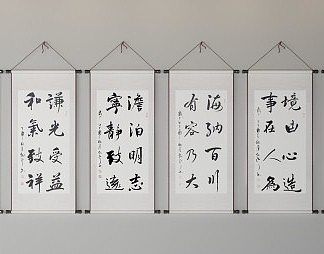 境由心造
事在人為
海納百川
有容乃大
澹泊明志
寧靜致遠
謙光受益
和氣致祥